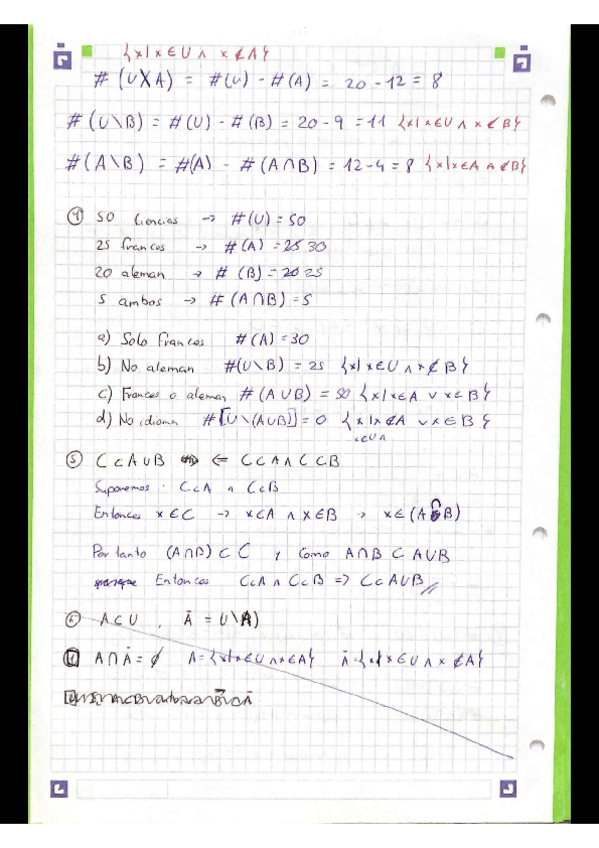 {x | x ∈ U ∧ x ∉ A}
# (U\A) = #(U) - #(A) = 20 - 12 = 8
# (U\B) = #(U) - #(B) = 20 - 9 = 11 {x | x ∈ U ∧ x ∉ B}
# (A\B) = #(A) - #(A∩B) = 12 - 4 = 8 {x | x ∈ A ∧ ∉ B}
④ 50 Ciencias → #(U) = 50
25 frances → #(A) = 25 30
20 aleman → # (B) = 20 25
5 ambos → # (A∩B) = 5
a) Solo frances #(A) = 30
b) No aleman #(U\B) = 25 {x | x ∈ U ∧ x ∉ B}
c) Frances o aleman #(A∪B) = 50 {x | x ∈ A ∨ x ∈ B}
d) No idioma #[U\(A∪B)] = 0 {x | x ∉ A ∨ x ∈ B}
x ∈ U ∧
⑤ C ⊂ A∪B ⇐ C ⊂ A ∧ C ⊂ B
Suponemos: C ⊂ A ∧ C ⊂ B
Entonces x ∈ C → x ∈ A ∧ x ∈ B → x ∈ (A B)
Por tanto (A∩B) ⊂ C y como A∩B ⊂ A∪B
Entonces C ⊂ A ∧ C ⊂ B => C ⊂ A∪B //
⑥ A ⊂ U , Ā = U\A)
A∩Ā = ∅ A = {x | x ∈ U ∧ x ∈ A} Ā = {x | x ∈ U ∧ x ∉ A}